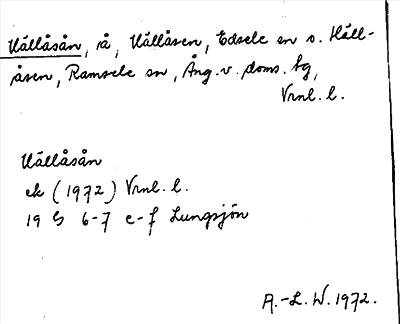 Källåsån, å, Källåsen, Edsele sn o. Käll-
åsen, Ramsele sn, Ång. v. doms. bg,
Vrnl. l.
Källåsån
ek (1972) Vrnl. l.
19 G 6-7 e-f Lungsjön
A.-L. W. 1972.